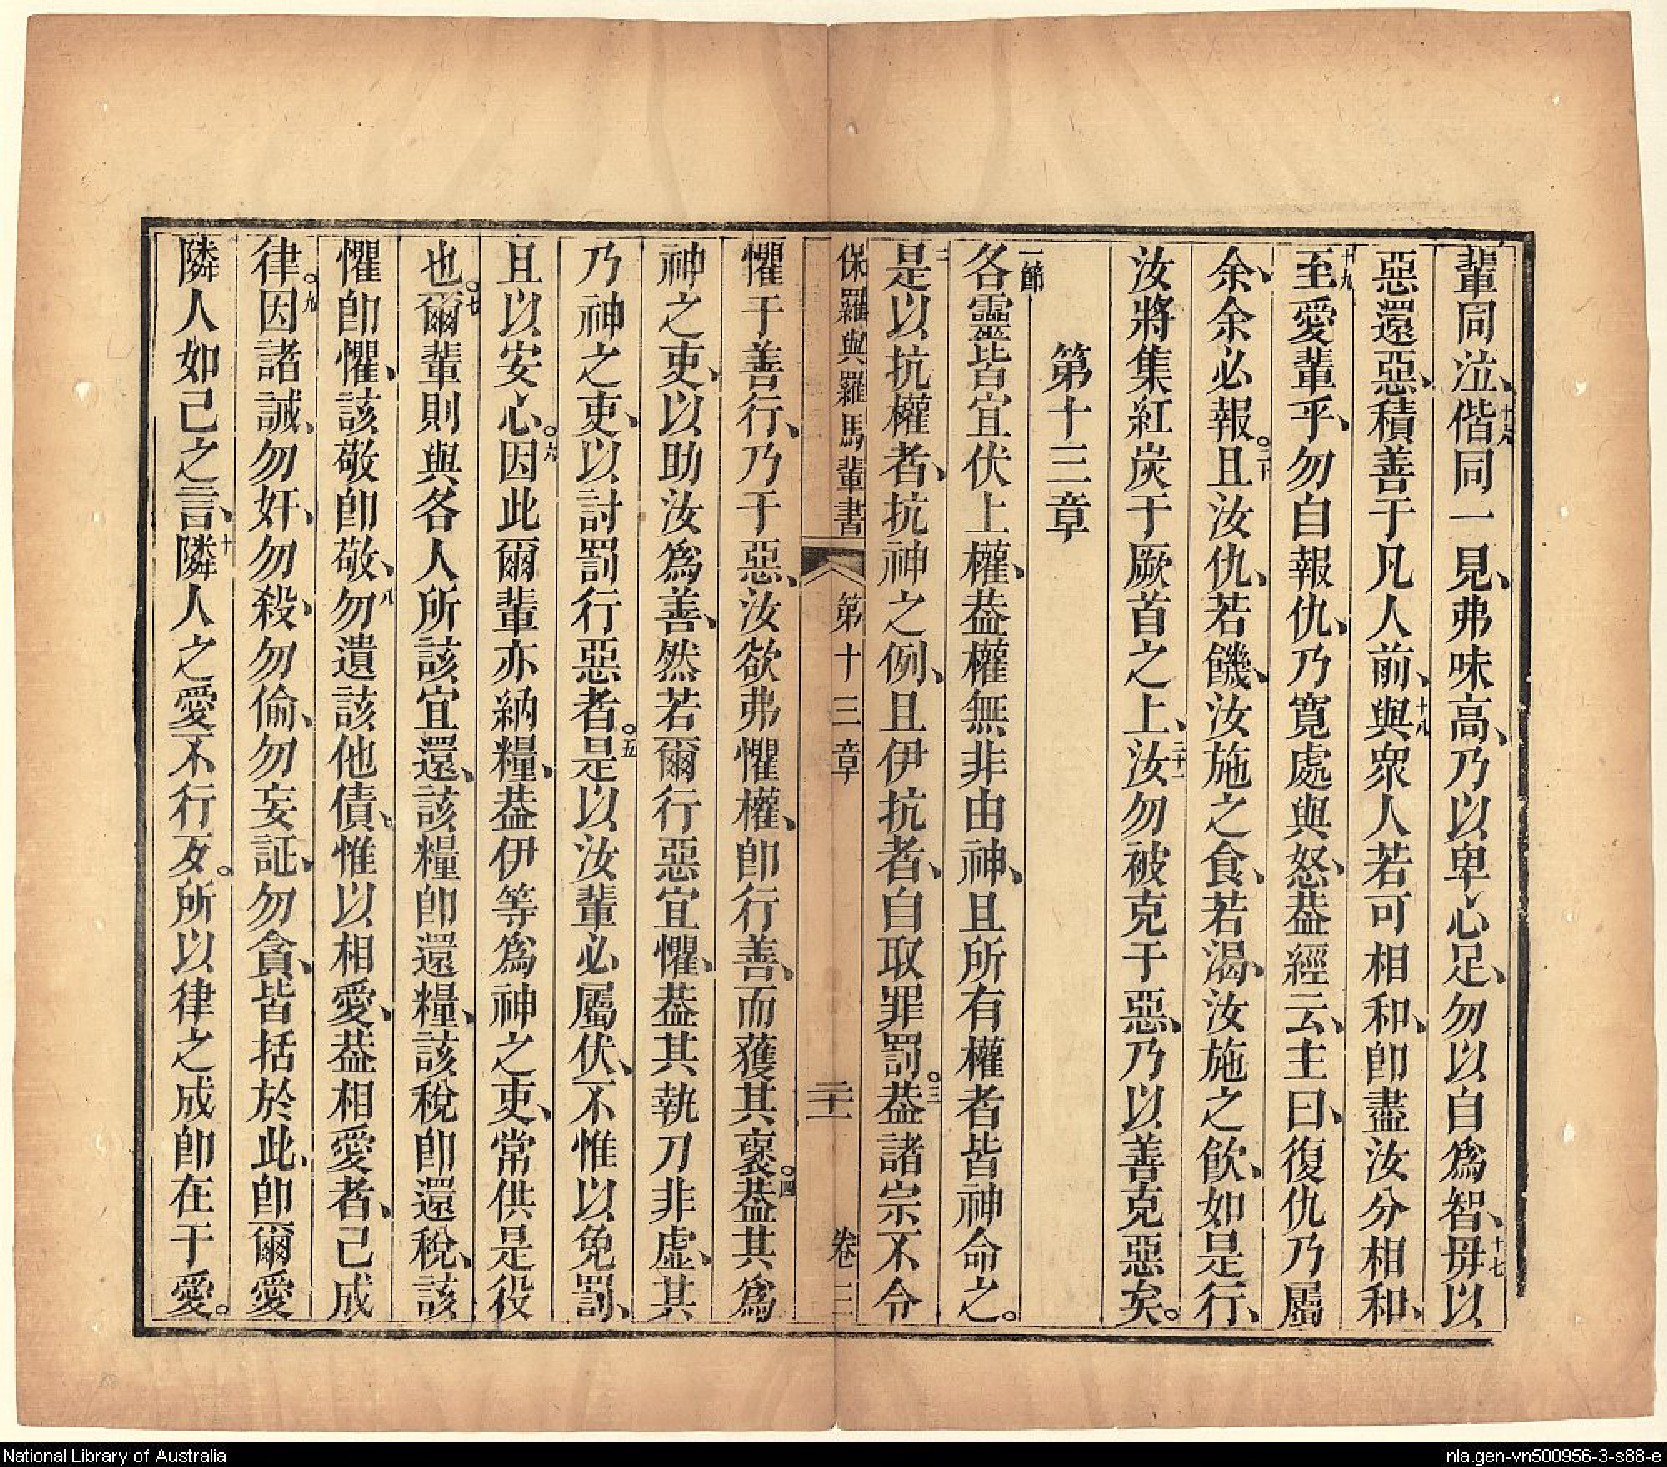 輩同泣、十六偕同一見、弗味高、乃以卑心足、勿以自為智、十七毋以
惡還惡、積善于凡人前、十八與衆人若可相和、卽盡汝分相和、
十九至愛輩乎、勿自報仇、乃寬處與怒、葢經云、主曰、復仇乃屬
余、余必報。二十且汝仇、若饑、汝施之食、若渴、汝施之飲、如是行、
汝將集紅炭于厥首之上、二十一汝勿被克于惡、乃以善克惡矣。
第十三章
一節各靈皆宜伏上權、葢權無非由神、且所有權者皆神命之。
二是以抗權者、抗神之例、且伊抗者、自取罪罰。三葢諸宗不令
保羅與羅馬輩書 第十三章 二十一 卷三
懼于善行、乃于惡、汝欲弗懼權、卽行善、而獲其褒。四葢其為
神之吏、以助汝為善、然若爾行惡宜懼、葢其執刀非虛、其
乃神之吏、以討罰行惡者。五是以汝輩必屬伏、不惟以免罰、
且以安心。六因此爾輩亦納糧、葢伊等為神之吏、常供是役
也。七爾輩則與各人所該宜還、該糧卽還糧、該稅卽還稅、該
懼卽懼、該敬卽敬、八勿遺該他債、惟以相愛、葢相愛者、己成
律。九因諸誡、勿奸、勿殺、勿偷、勿妄証、勿貪、皆括於此、卽爾愛
隣人如己之言、十隣人之愛不行歹。所以律之成卽在于愛。
National Library of Australia
nla.gen-vn500956-3-s88-e